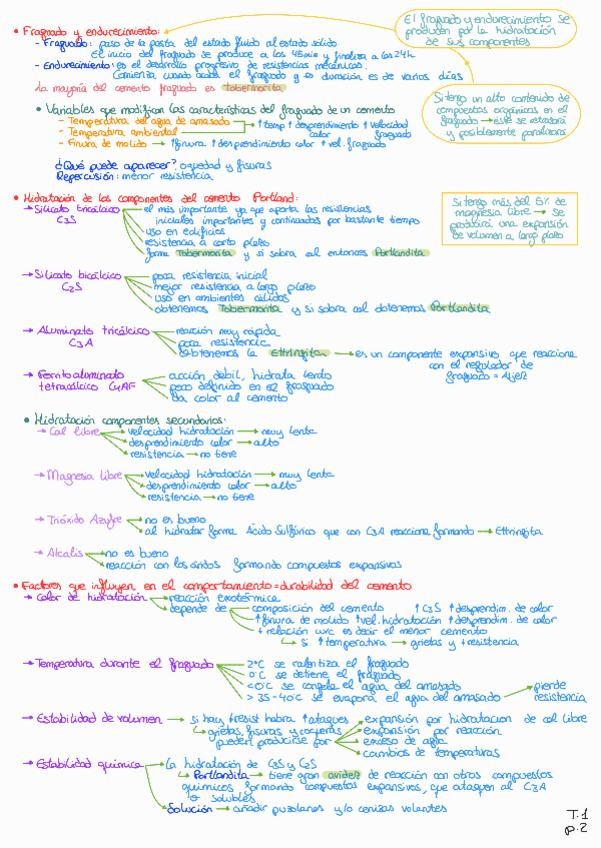 • Fraguado y endurecimiento:
- Fraguado: paso de la pasta del estado fluido al estado sólido
El inicio del fraguado se produce a los 45min y finaliza a las 24h
- Endurecimiento: es el desarrollo progresivo de resistencias mecánicas.
Comienza cuando acaba el fraguado y es duración es de varios días
La mayoría del cemento fraguado es Tobermorita
El fraguado y endurecimiento se
producen por la hidratación
de sus componentes
Si tengo un alto contenido de
compuestos orgánicos en el
fraguado → éste se retrasará
y posiblemente paralizará
• Variables que modifican las características del fraguado de un cemento
- Temperatura del agua de amasado
- Temperatura ambiental
→ ↑temp ↑desprendimiento ↑velocidad
calor fraguado
- Finura de molido → ↑finura ↑desprendimiento calor ↑vel. fraguado
¿Qué puede aparecer? oquedad y fisuras
Repercusión: menor resistencia
• Hidratación de los componentes del cemento Portland:
→ Silicato tricálcico
C3S
el más importante ya que aporta las resistencias
iniciales importantes y continuadas por bastante tiempo
uso en edificios
resistencia a corto plazo
forma Tobermorita y si sobra cal entonces Portlandita
Si tengo más del 5% de
magnesia libre → se
producirá una expansión
de volumen a largo plazo
→ Silicato bicálcico
C2S
poca resistencia inicial
mejor resistencia a largo plazo
uso en ambientes cálidos
obtenemos Tobermorita y si sobra cal obtenemos Portlandita
→ Aluminato tricálcico
C3A
reacción muy rápida
poca resistencia
obtenemos la Ettringita → es un componente expansivo que reacciona
con el regulador de
fraguado = Aljez
→ Ferrito aluminato
tetracálcico C4AF
acción débil, hidrata lento
poco definido en el fraguado
da color al cemento
• Hidratación componentes secundarios:
→ Cal libre
velocidad hidratación → muy lenta
desprendimiento calor → alto
resistencia → no tiene
→ Magnesia libre
velocidad hidratación → muy lenta
desprendimiento calor → alto
resistencia → no tiene
→ Trióxido Azufre
no es bueno
al hidratar forma Ácido Sulfúrico que con C3A reacciona formando → Ettringita
→ Alcalis
no es bueno
reacción con los áridos formando compuestos expansivos
• Factores que influyen en el comportamiento = durabilidad del cemento
→ Calor de hidratación
reacción exotérmica
depende de
composición del cemento ↑C3S ↑desprendim. de calor
↑finura de molido ↑vel. hidratación ↑desprendim. de calor
+ relación w/c es decir el menor cemento
↳ si ↑temperatura → grietas y +resistencia
→ Temperatura durante el fraguado
2°C se ralentiza el fraguado
0°C se detiene el fraguado
<0°C se congela el agua del amasado
> 35-40°C se evapora el agua del amasado → pierde
resistencia
→ Estabilidad de volumen → si hay ↑resist habrá ↑ataques
grietas, fisuras y coqueras
pueden producirse por
expansión por hidratación de cal libre
expansión por reacción
exceso de agua
cambios de temperaturas
→ Estabilidad química
La hidratación de C3S y C2S
↳ Portlandita → tiene gran avidez de reacción con otros compuestos
químicos formando compuestos expansivos, que ataquen al C3A
o solubles
Solución → añadir puzolanas y/o cenizas volantes
T.1
p.2